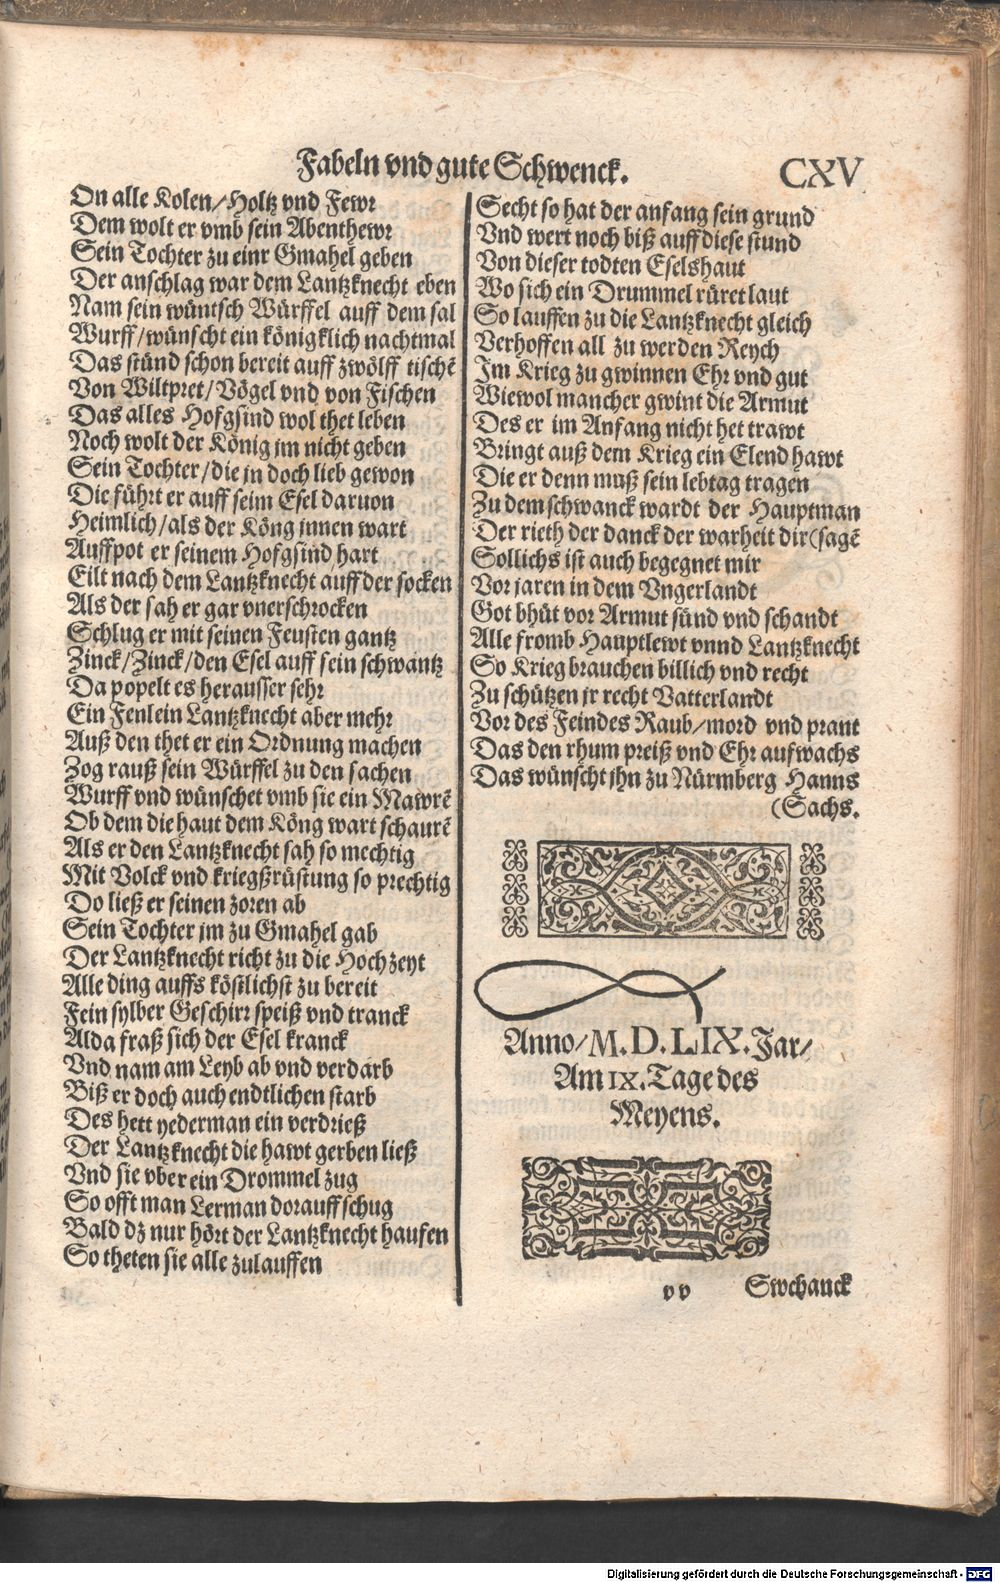 Fabeln vnd gute Schwenck. CXV
On alle Kolen/Holtz vnd Fewr
Dem wolt er vmb sein Abenthewr
Sein Tochter zu einr Gmahel geben
Der anschlag war dem Lantzknecht eben
Nam sein wüntsch Würffel auff dem sal
Wurff/wünscht ein königklich nachtmal
Das stünd schon bereit auff zwölff tischẽ
Von Wiltpret/Vögel vnd von Fischen
Das alles Hofgsind wol thet leben
Noch wolt der König jm nicht geben
Sein Tochter/die jn doch lieb gewon
Die führt er auff seim Esel daruon
Heimlich/als der Köng jnnen wart
Auffpot er seinem Hofgsind hart
Eilt nach dem Lantzknecht auff der socken
Als der sah er gar vnerschrocken
Schlug er mit seinen Feusten gantz
Zinck/Zinck/den Esel auff sein schwantz
Da popelt es herausser sehr
Ein Fenlein Lantzknecht aber mehr
Auß den thet er ein Ordnung machen
Zog rauß sein Würffel zu den sachen
Wurff vnd wünschet vmb sie ein Mawrẽ
Ob dem die haut dem Köng wart schaurẽ
Als er den Lantzknecht sah so mechtig
Mit Volck vnd kriegßrüstung so prechtig
Do ließ er seinen zoren ab
Sein Tochter jm zu Gmahel gab
Der Lantzknecht richt zu die Hochzeyt
Alle ding auffs köstlichst zu bereit
Fein sylber Geschirr speiß vnd tranck
Alda fraß sich der Esel kranck
Vnd nam am Leyb ab vnd verdarb
Biß er doch auch endtlichen starb
Des hett yederman ein verdrieß
Der Lantzknecht die hawt gerben ließ
Vnd sie vber ein Drommel zug
So offt man Lerman dorauff schug
Bald dz nur hört der Lantzknecht haufen
So theten sie alle zulauffen
Secht so hat der anfang sein grund
Vnd wert noch biß auff diese stund
Von dieser todten Eselshaut
Wo sich ein Drummel rüret laut
So lauffen zu die Lantzknecht gleich
Verhoffen all zu werden Reych
Im Krieg zu gwinnen Ehr vnd gut
Wiewol mancher gwint die Armut
Des er im Anfang nicht het trawt
Bringt auß dem Krieg ein Elend hawt
Die er denn muß sein lebtag tragen
Zu dem schwanck wardt der Hauptman
Der rieth der danck der warheit dir(sagẽ
Sollichs ist auch begegnet mir
Vor jaren in dem Vngerlandt
Got bhüt vor Armut sünd vnd schandt
Alle fromb Hauptlewt vnnd Lantzknecht
So Krieg brauchen billich vnd recht
Zu schützen jr recht Vatterlandt
Vor des Feindes Raub/mord vnd prant
Das den rhum preiß vnd Ehr aufwachs
Das wünscht jhn zu Nürmberg Hanns
(Sachs.
Anno/M.D.LIX.Jar/
Am IX.Tage des
Meyens.
vv Swchanck
Digitalisierung gefördert durch die Deutsche Forschungsgemeinschaft - DFG